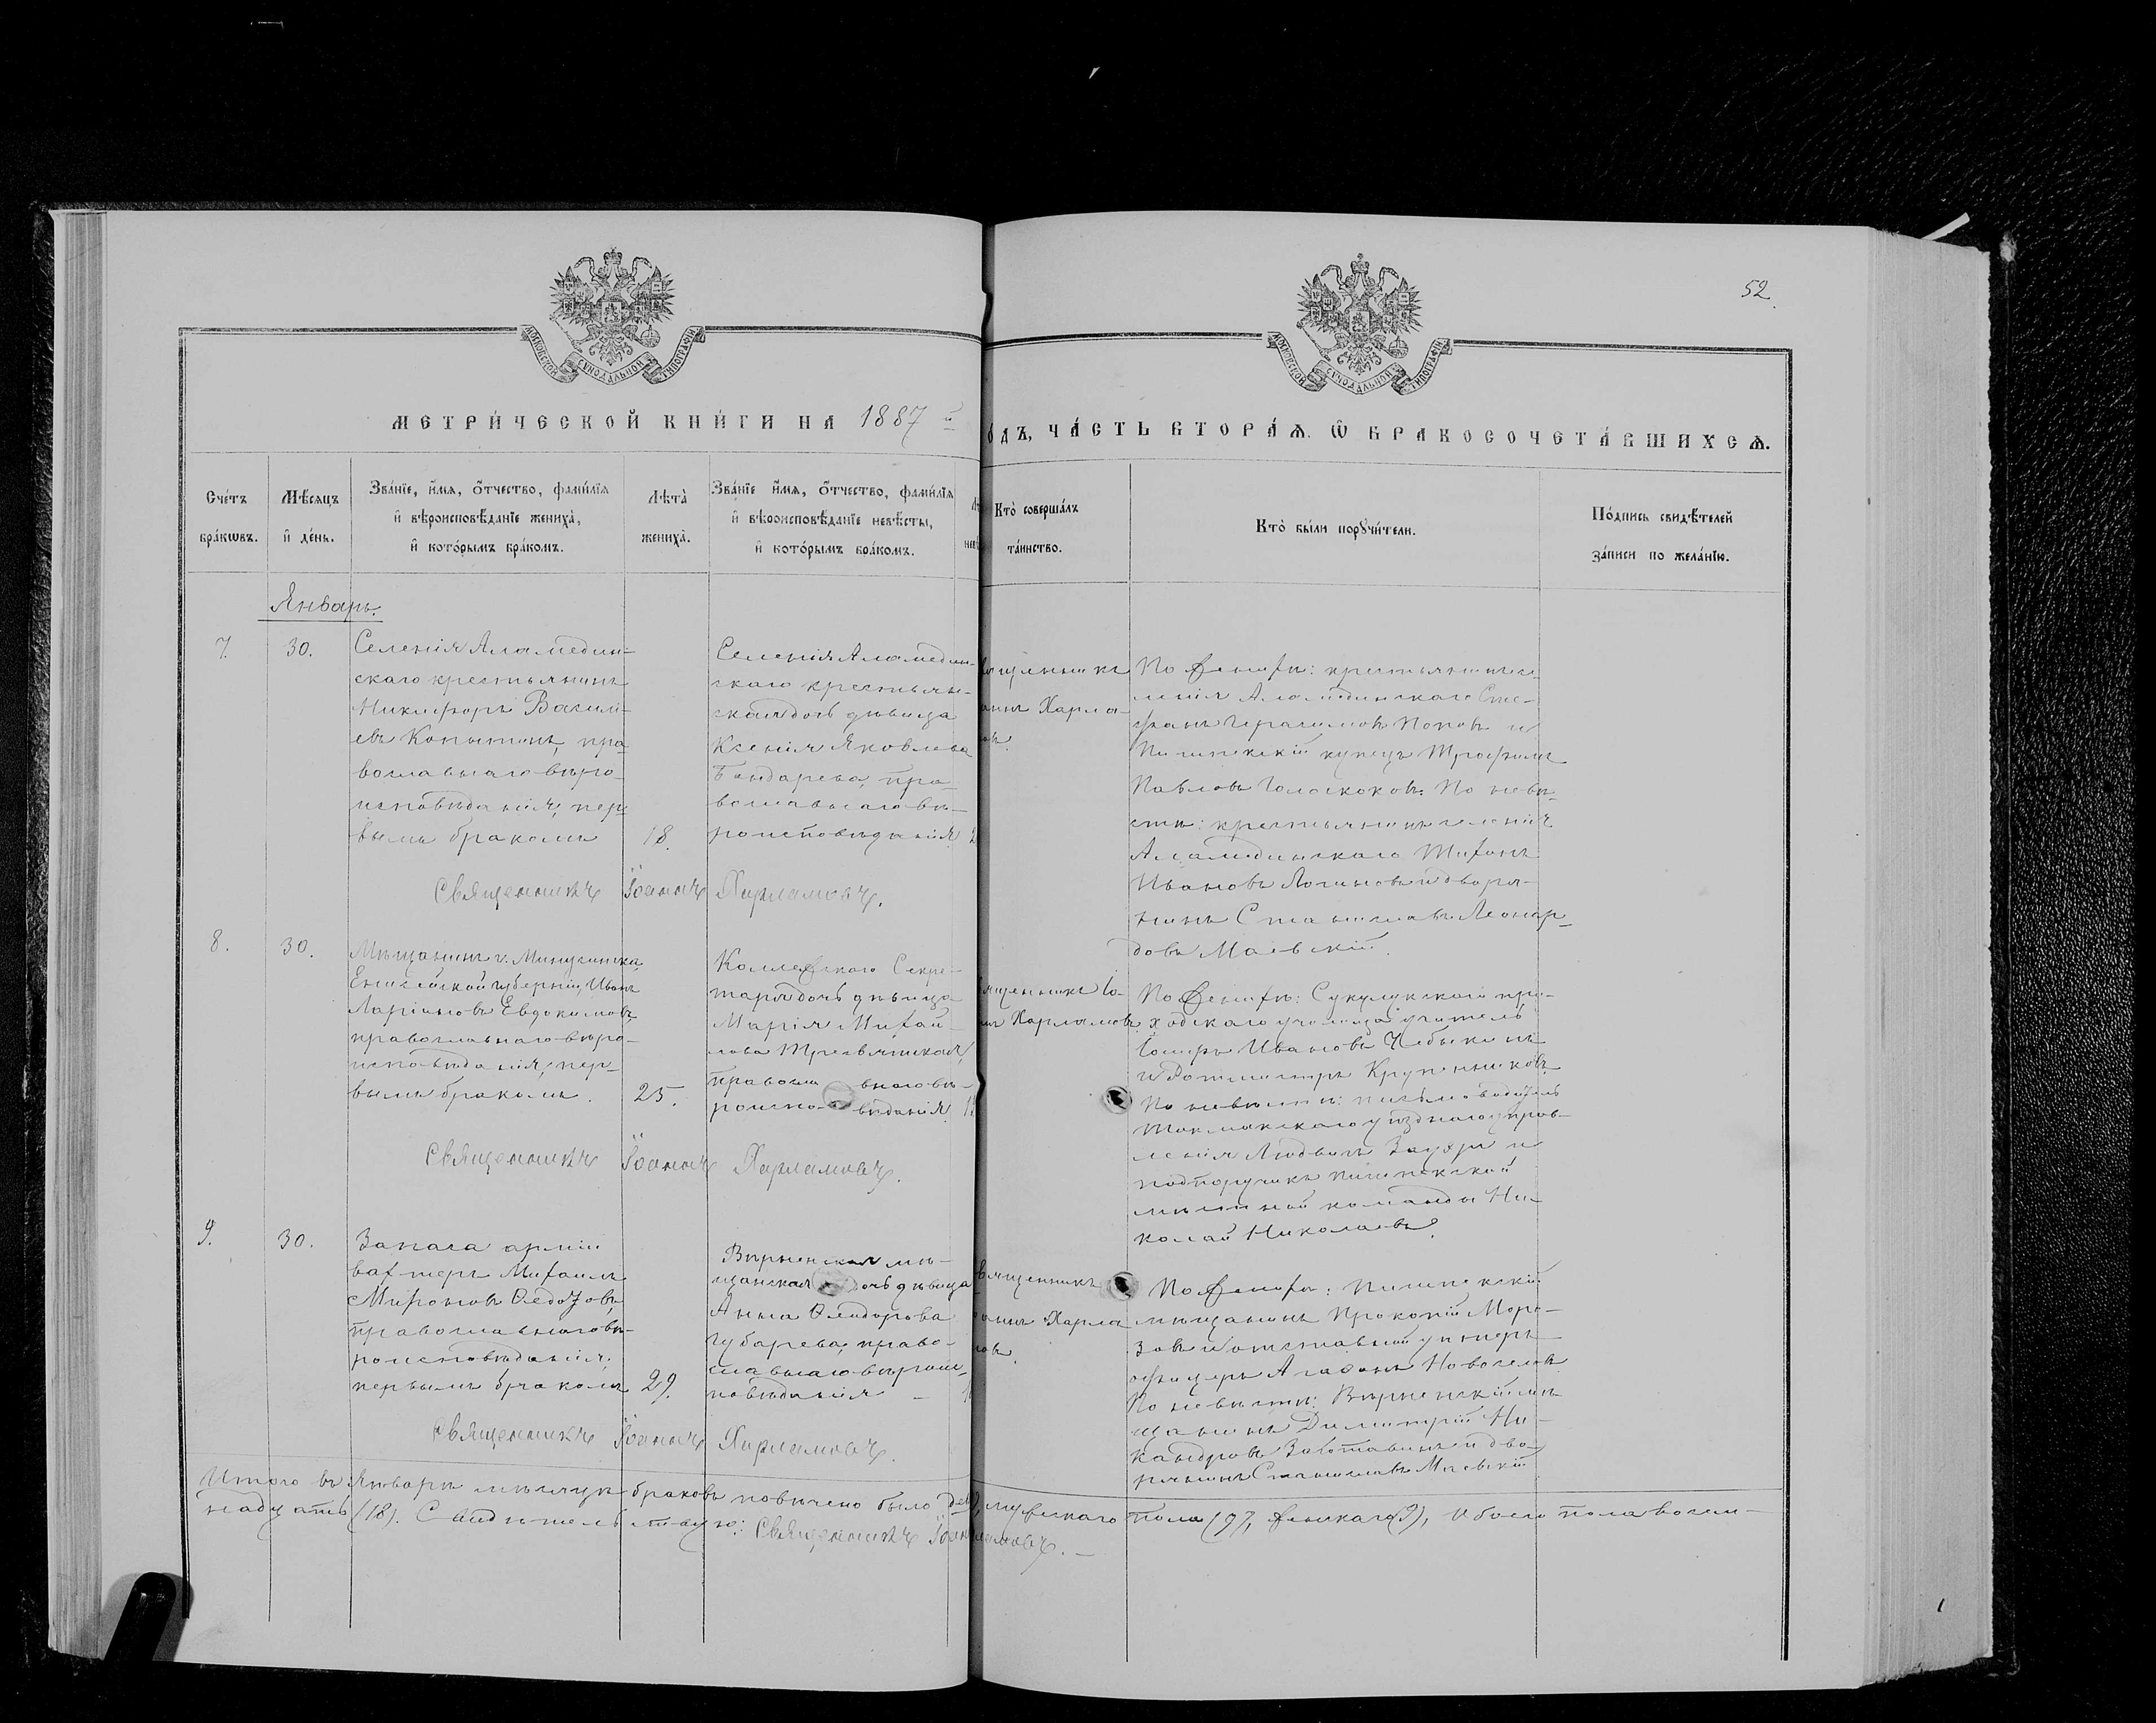 52
МОСКОВСКОЙ СѴНОДАЛЬНОЙ ТИПОГРАФІИ
МОСКОВСКОЙ СѴНОДАЛЬНОЙ ТИПОГРАФІИ
МЕТРИ́ЧЕСКОЙ КНИ́ГИ НА 1887 й
О́ДЪ, ЧА́СТЬ ВТОРА́Ѧ. Ѽ БРАКОСОЧЕТА́ВШИХСѦ.
Сче́тъ
бра́кωвъ.
Мѣ́сяцъ
и҆ де́нь.
Зва́нїе, и҆́мѧ, ѻ҆́тчество, фами́лїѧ
и҆ вѣроисповѣ́данїе жениха̀,
и҆ кото́рымъ бра́комъ.
Лѣта̀
жениха̀.
Зва́нїе и҆́мѧ, ѻ҆́тчество, фами́лїѧ
и҆ вѣроисповѣ́данїе невѣ́сты,
и҆ кото́рымъ бра́комъ.
Кто̀ соверша́лъ
та́инство.
Кто̀ бы́ли порꙋчи́тели.
По́дпись свидѣ́телей
за́писи по жела́нїю.
Январь.
7.
30.
Селенія Аламедин-
скаго крестьянинъ
Никифоръ Васили-
евъ Копытинъ, пра-
вославнаго вѣро-
исповѣданія, пер-
вымъ бракомъ
18.
Селенія Аламедин-
скаго крестьян-
ская дочь дѣвица
Ксенія Яковлева
Бондарева, пра-
вославнаго вѣ-
роисповѣданія
вященникъ
аннъ Харла-
овъ.
По женихѣ: крестьянинъ се-
ленія Аламединскаго Сте-
фанъ Герасимовъ Поповъ и
Пишпекскій купецъ Трофимъ
Павловъ Голоскоковъ. По невѣ-
стѣ: крестьянинъ селенія
Аламединскаго Тихонъ
Ивановъ Логиновъ и дворя-
нинъ Станиславъ Леонар-
довъ Маевскій.
Священникъ Іоаннъ Харламовъ.
8.
30.
Мѣщанинъ г. Минусинска,
Енисейской губерніи, Иванъ
Ларіоновъ Евдокимовъ,
православнаго вѣро-
исповѣданія, пер-
вымъ бракомъ.
25.
Коллежскаго Секре-
таря дочь дѣвица
Марія Михай-
лова Тресвятская,
православнаго вѣ-
роисповѣданія.
ященникъ Іо-
нъ Харламовъ
По женихѣ: Сукулукскаго при-
ходскаго училища учитель
Іосифъ Ивановъ Чебыкинъ
и Ротмистръ Крупенниковъ.
По невѣстѣ: письмоводитель
Токмакскаго уѣзднаго управ-
ленія Людвигъ
подпоручикъ Пишпекской
мѣстной команды Ни-
колай Николаевъ.
Священникъ Іоаннъ Харламовъ.
9.
30.
Запаса арміи
вахтеръ Михаилъ
Мироновъ Ѳедотовъ,
православнаго вѣ-
роисповѣданія,
первымъ бракомъ
29.
Вѣрненская мѣ-
щанская дочь дѣвица
Анна Ѳеодорова
Губарева, право-
славнаго вѣроис-
повѣданія —
вященникъ
аннъ Харла
овъ.
По женихѣ: Пишпекскій
мѣщанинъ Прокопій Моро-
зовъ и отставной унтеръ-
офицеръ Агафонъ Новоселовъ
По невѣстѣ: Вѣрненскій мѣ-
щанинъ Димитрій Ни-
кандровъ и дво-
рянинъ Станиславъ Маевскій
Священникъ Іоаннъ Харламовъ.
Итого въ Январѣ мѣсяцѣ браковъ повѣнчано было мужескаго пола (9), женскаго (9), обоего пола восем-
надцать (18). Свидѣтельствую: Священникъ